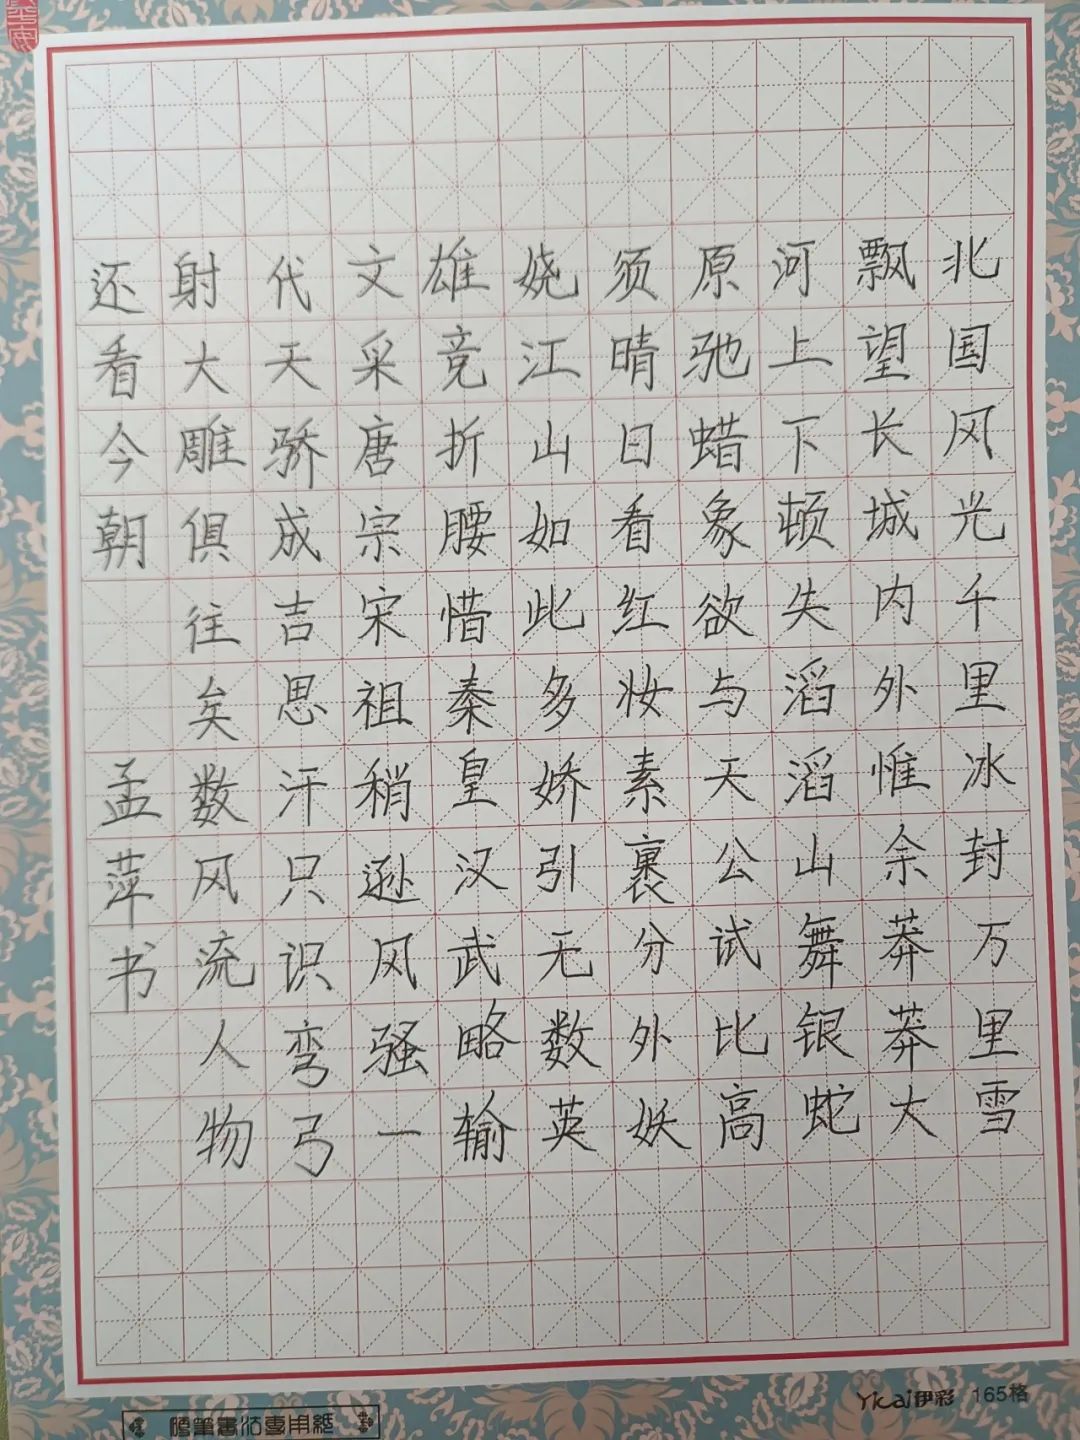 北国风光千里冰封万里雪
飘望长城内外惟余莽莽大
河上下顿失滔滔山舞银蛇
原驰蜡象欲与天公试比高
须晴日看红妆素裹分外妖
娆江山如此多娇引无数英
雄竞折腰惜秦皇汉武略输
文采唐宗宋祖稍逊风骚一
代天骄成吉思汗只识弯弓
射大雕俱往矣数风流人物
还看今朝
孟萍书
Yicai伊彩 165格
硬筆書法專用紙